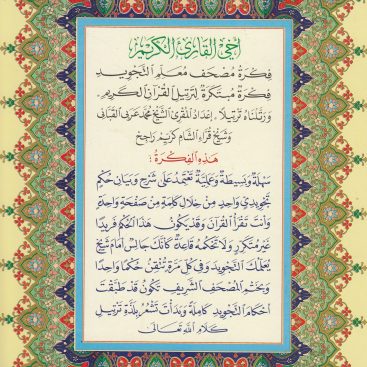 أخي القارئ الكريم
فِكْرَةُ مُصْحَف مُعَلِّم التَّجْوِيد
فِكْرَةٌ مُبْتَكَرَةٌ لِتَرْتِيلِ القُرْآنِ الكَرِيم.
وَرَتَّلْنَاهُ تَرْتِيلًا. إعْدَادُ المُقْرِئ الشَّيْخ مُحَمَّد عَرَبِي القَبَّانِي
وَشَيْخ قُرَّاءِ الشَّام كَرِيِّم رَاجِح
هَذِهِ الفِكْرَةُ :
سَهْلَةٌ وَبَسِيطَةٌ وَعَمَلِيَّةٌ تَعْتَمِدُ عَلَى شَرْحِ وَبَيَانِ حُكْمٍ
تَجْوِيدِيٍّ وَاحِدٍ مِنْ خِلَالِ كَلِمَةٍ مِنْ صَفْحَةٍ وَاحِدَةٍ
وَأَنْتَ تَقْرَأُ القُرْآنَ وَقَدْ يَكُونُ هَذَا الحُكْمُ فَرِيدًا
غَيْرَ مُتَكَرِّرٍ وَلَا تَحْكُمُهُ قَاعِدَةٌ كَأَنَّكَ جَالِسٌ أَمَامَ شَيْخٍ
يُعَلِّمُكَ التَّجْوِيدَ وَفِي كُلِّ مَرَّةٍ تُتْقِنُ حُكْمًا وَاحِدًا
وَبِخَتْمِ المُصْحَفِ الشَّرِيفِ تَكُونُ قَدْ طَبَّقْتَ
أَحْكَامَ التَّجْوِيدِ كَامِلَةً وَبَدَأْتَ تَشْعُرُ بِلَذَّةِ تَرْتِيلِ
كَلَامِ اللهِ تَعَالَى